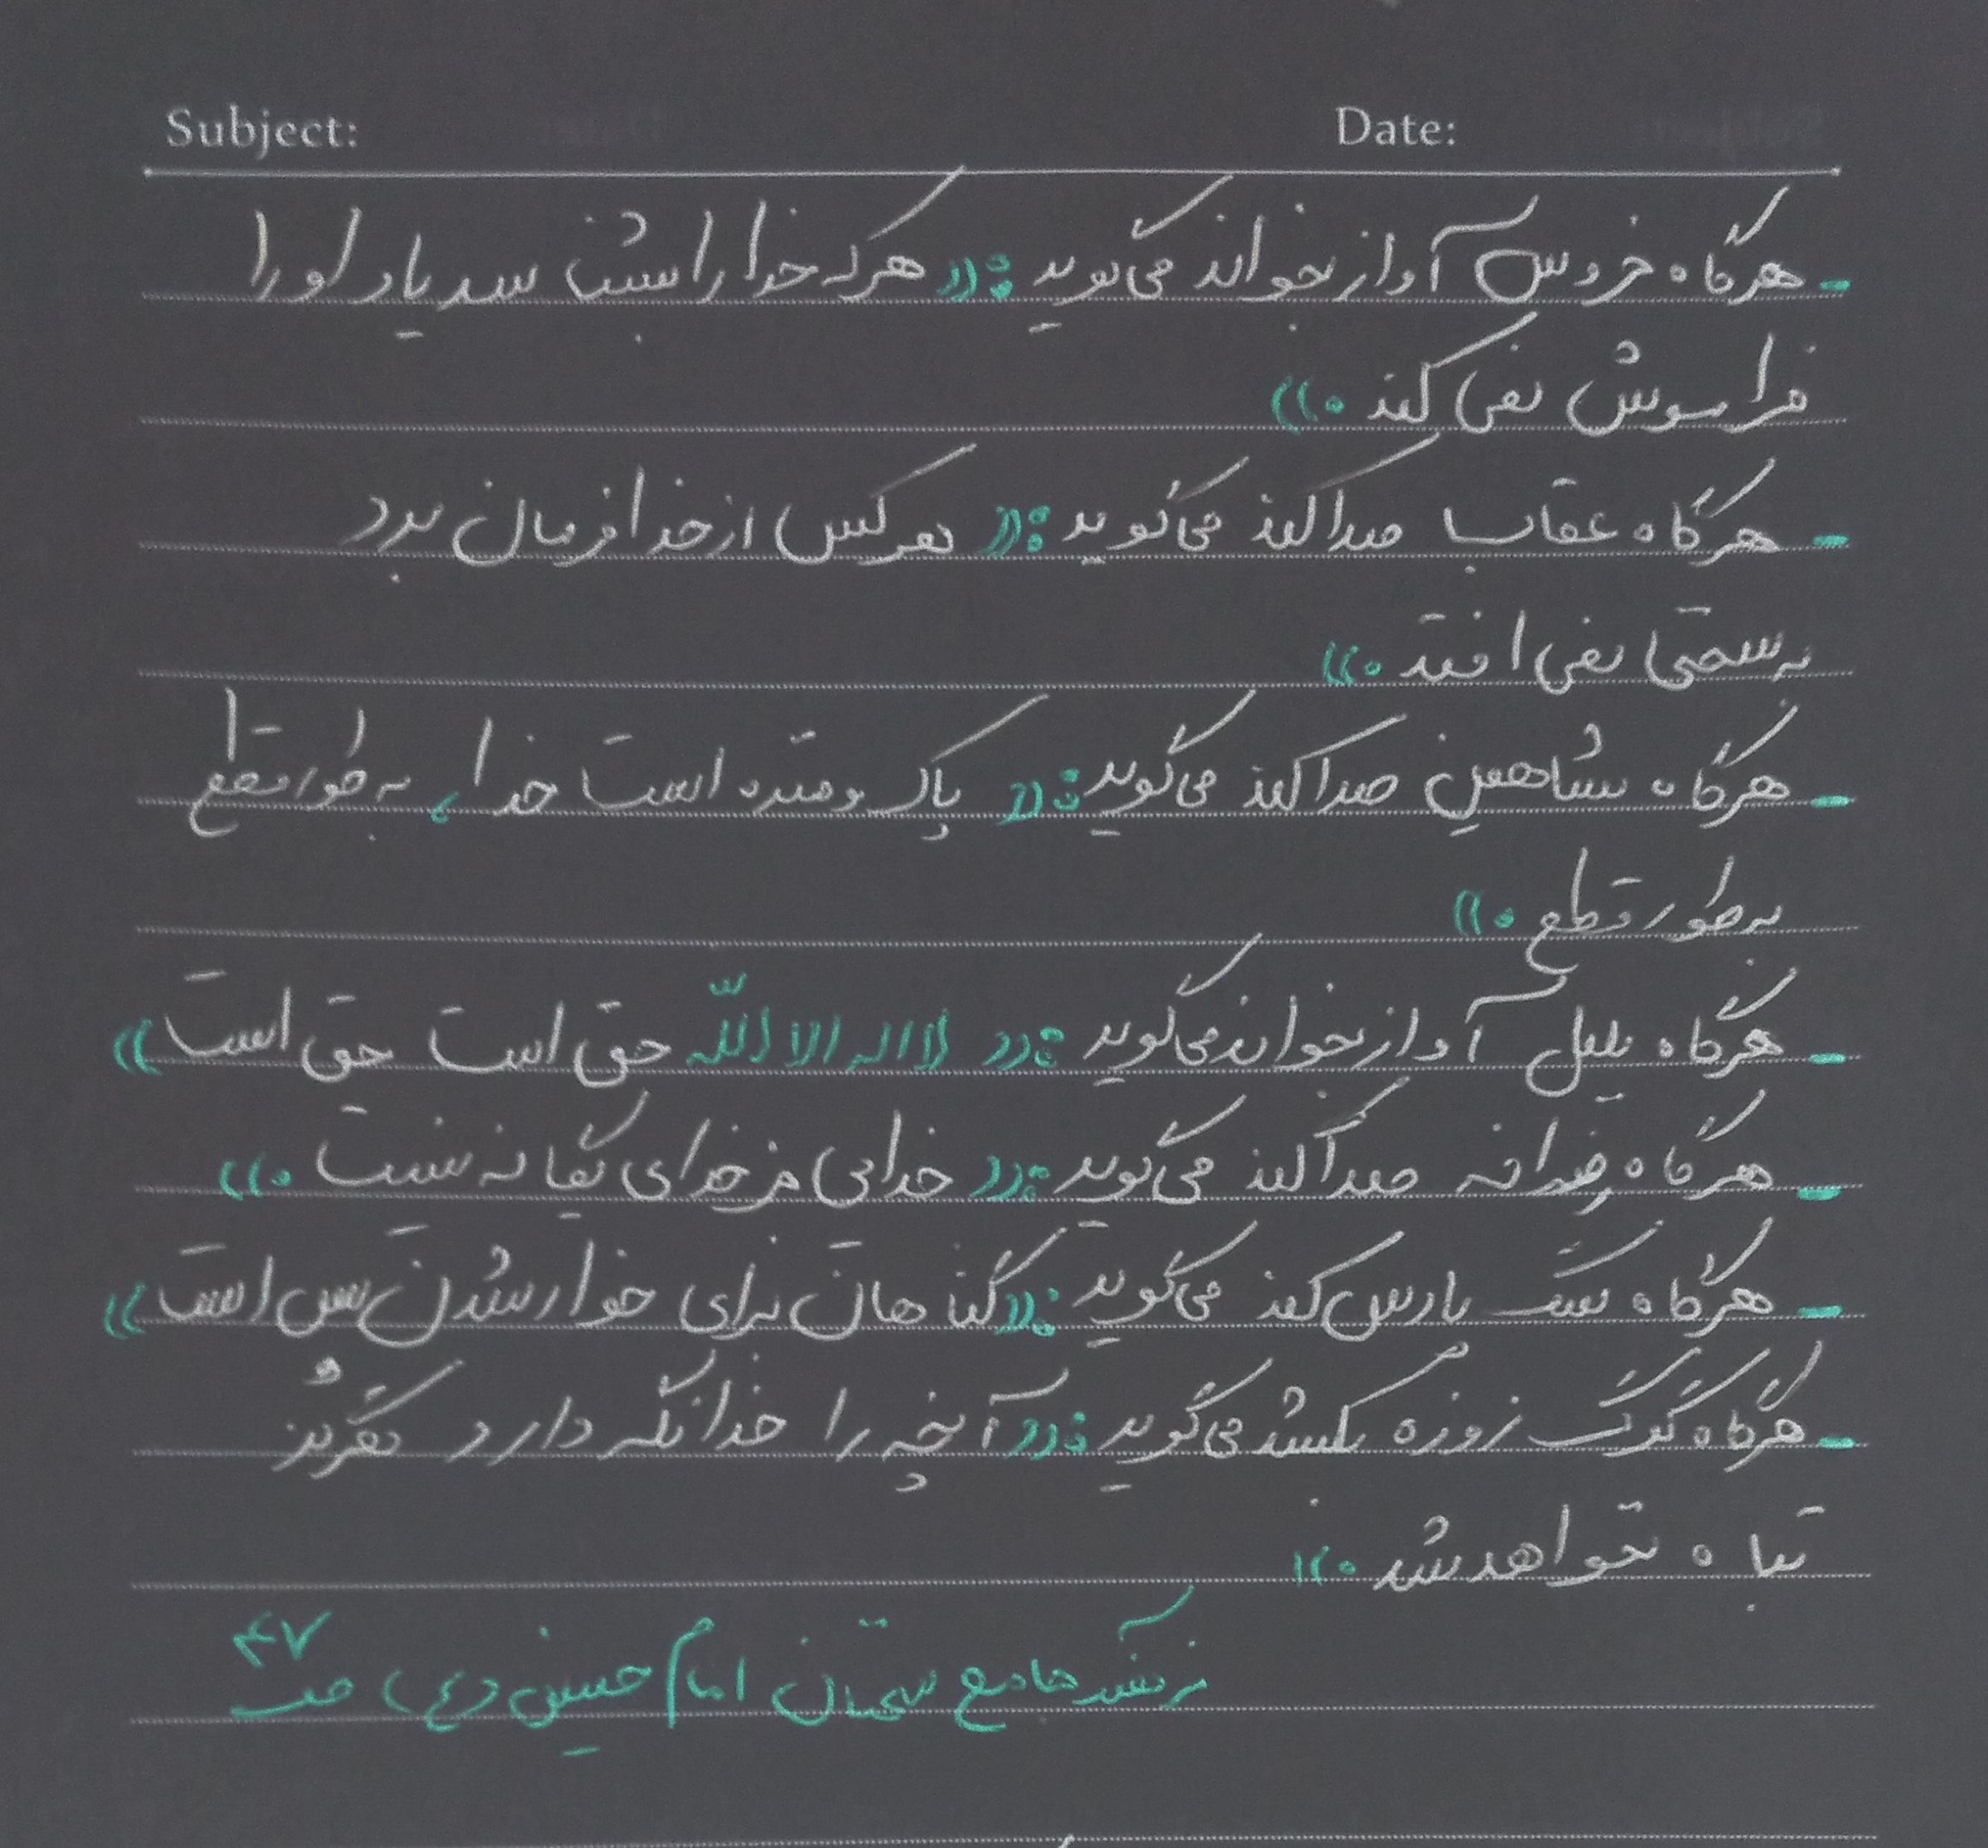 Subject: Date:
- هرگاه خروس آواز بخواند می‌گوید: «هر که خدا را شناسد یاد او را
فراموش نمی‌کند.»
- هرگاه عقاب صدا کند می‌گوید: «هر کس از خدا فرمان برد
به سختی نمی‌افتد.»
- هرگاه شاهین صدا کند می‌گوید: «پاک و منزه است خدا، به طور قطع
به طور قطع.»
- هرگاه بلبل آواز بخواند می‌گوید: «لا اله الا الله حق است حق است»
- هرگاه صدا کند می‌گوید: «خدایی جز خدای یگانه نیست.»
- هرگاه سگ پارس کند می‌گوید: «گناهان برای خوار شدن بس است»
- هرگاه گرگ زوزه بکشد می‌گوید: «آنچه را خدا نگه دارد هرگز
تباه نخواهد شد.»
جامع سخنان امام حسین (ع) ص ۴۷